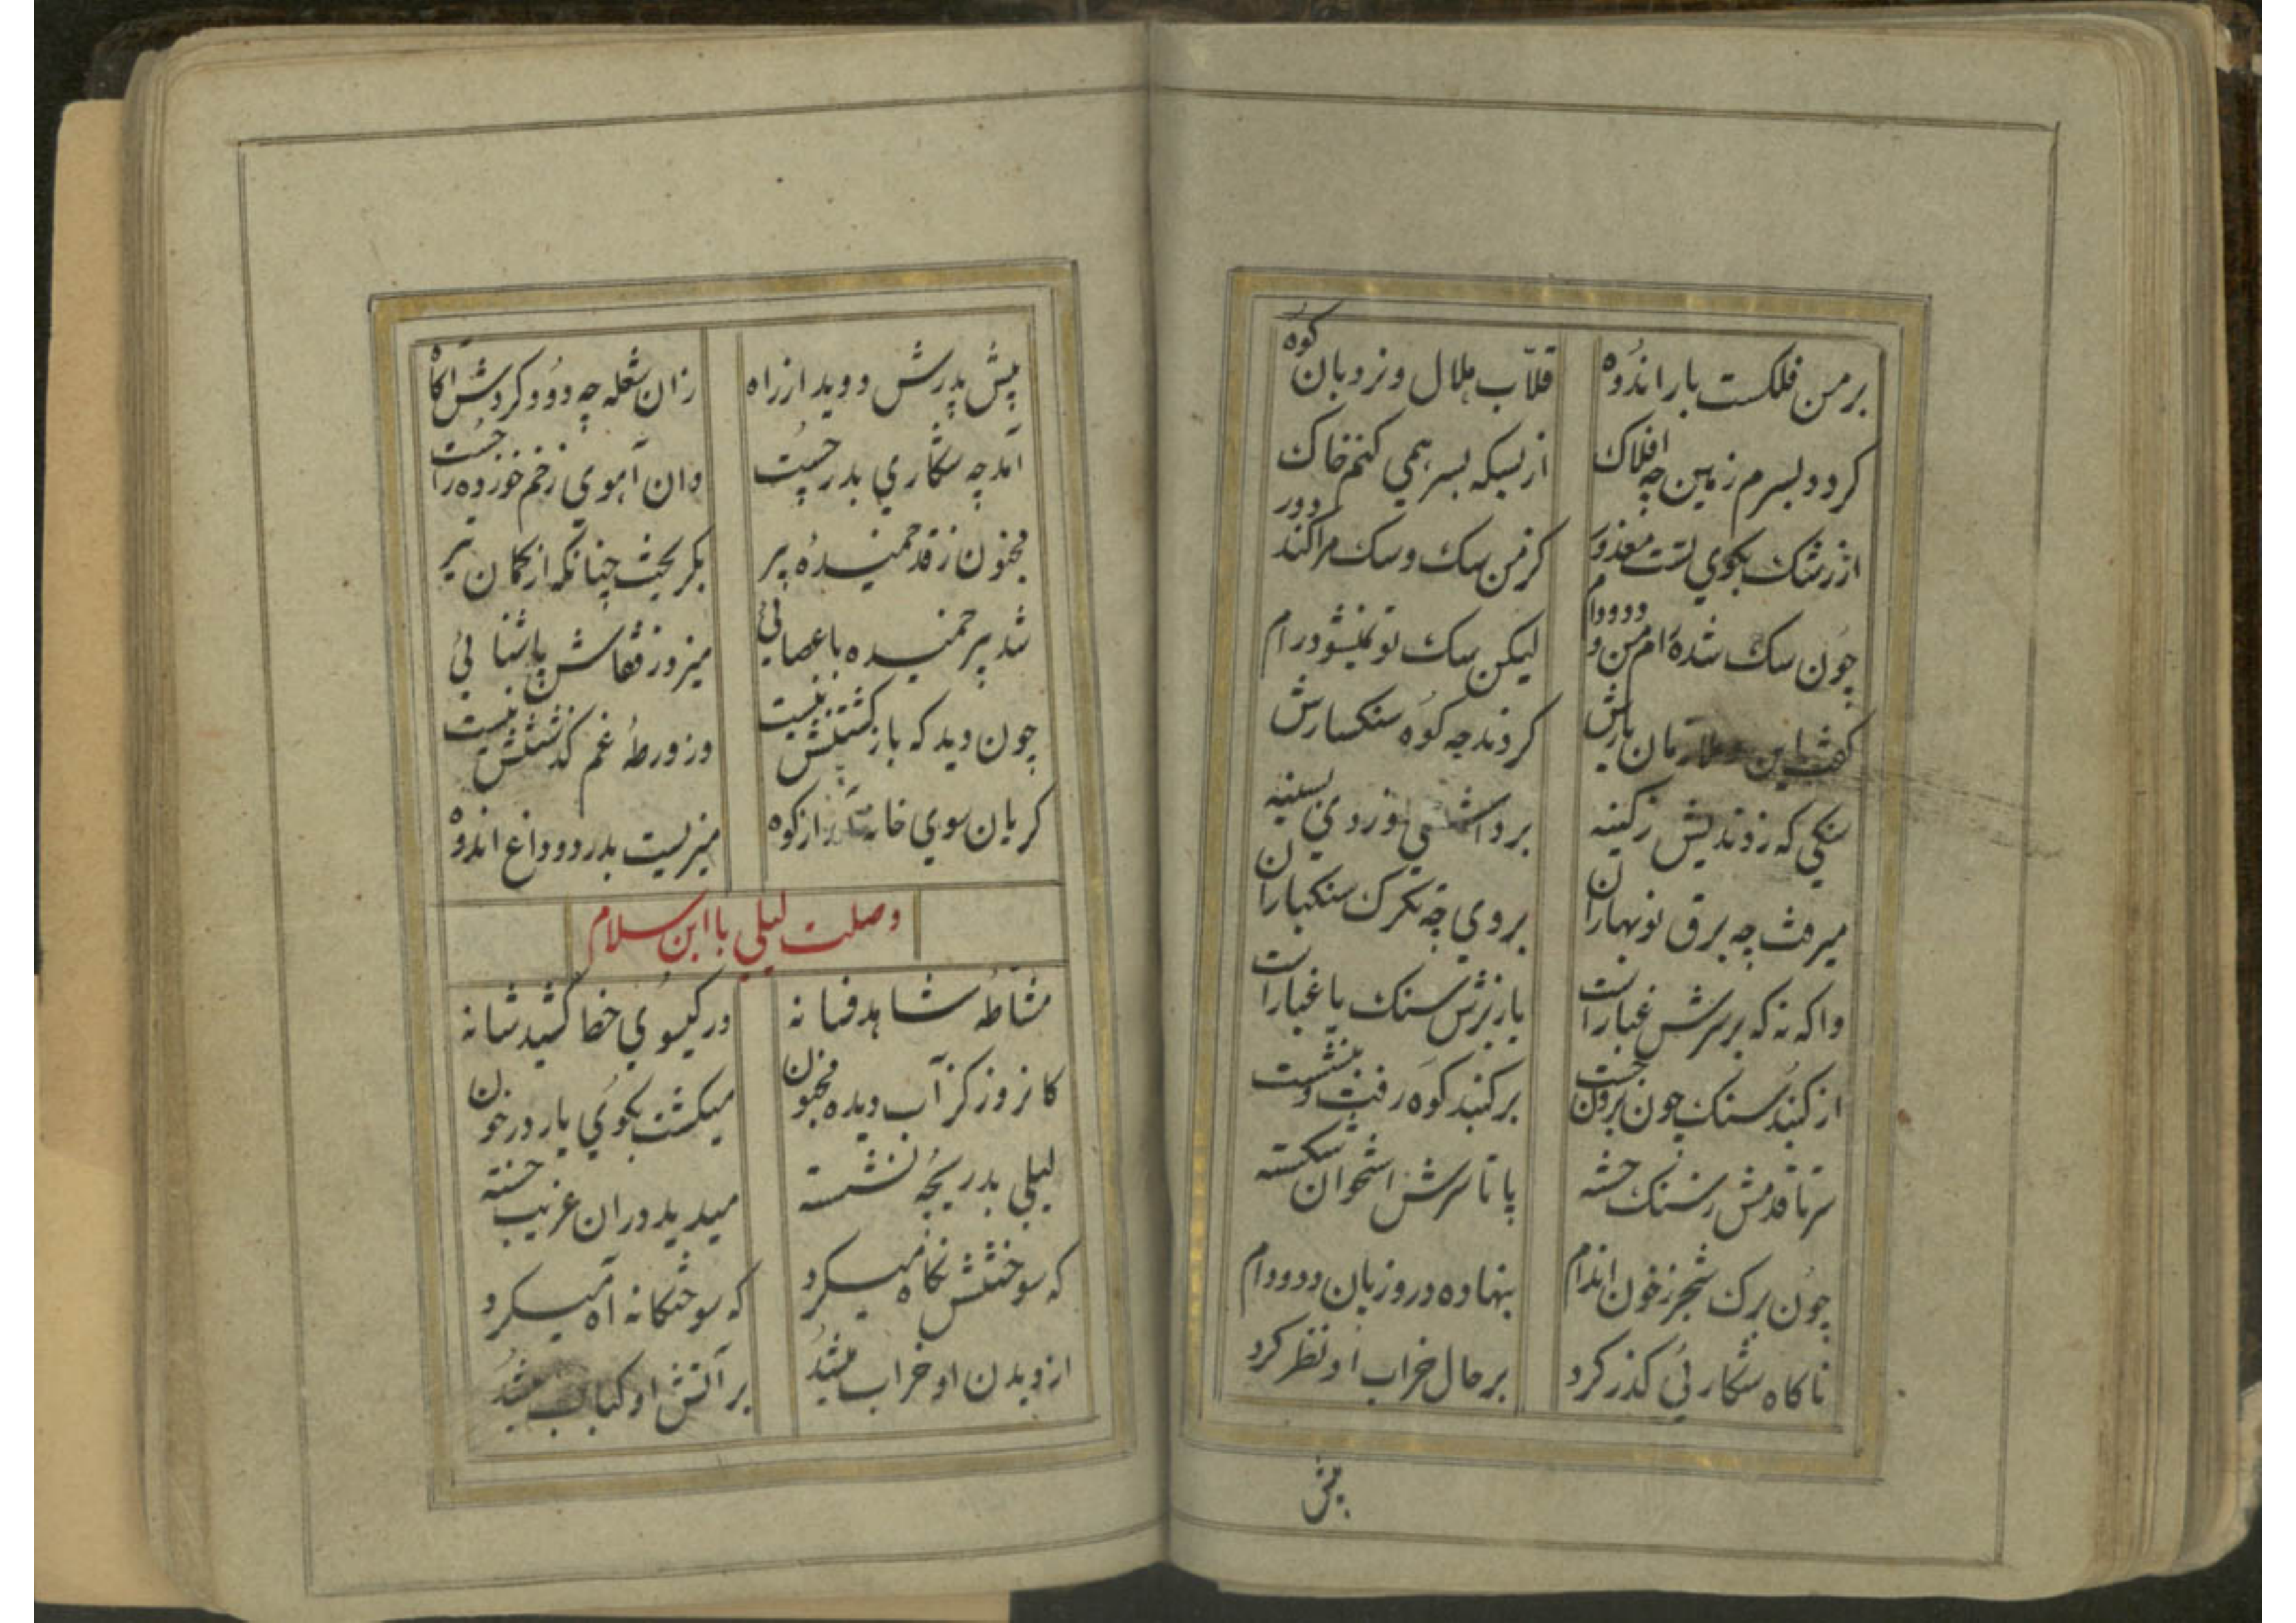 بر من فلکست بار اندوه قلاب هلال و نردبان کوه
کردد بسرم زمین چه افلاک از بسکه بسر همی کنم خاک
از رشک بکوی تست معذور کز من سک و سک مرا کند دور
چون سک شده‌ام من و دد و دام لیکن سک تو نمیشود رام
کفت این و ملازمان یارش کردند چه کوه سنکسارش
سنکی که زدندیش ز کینه برداشتی و زدی بسینه
میرفت چه برق نوبهاران بروی چه تکرک سنکباران
واکه نه که بر سرش غبارست بارنزش سنک یا غبارست
از کنبد سنک چون برون جست بر کنبد کوه رفت و بنشست
سر تا قدمش ز سنک خسته پا تا سرش استخوان شکسته
چون برک شجر ز خون اندام بنهاده درو زبان دد و دام
ناکاه شکارئی کذر کرد بر حال خراب او نظر کرد
پیش
پیش پدرش دوید از راه زان شعله چه دود کردش آکاه
آمد چه شکاری پدر چست وان آهوی زخم خورده را جست
مجنون ز قد خمیدهٔ پیر بکریخت چنانکه از کمان تیر
شد پیر خمیده با عصائی میزد ز قفاش پاشنائی
چون دید که بازکشتنش نیست وز ورطهٔ غم کذشتنش نیست
کریان سوی خانه از کوه میزیست بدرد و داغ اندوه
وصلت لیلی با ابن سلام
مشاطهٔ شاهد فسانه در کیسوی خطا کشید شانه
کانروز کز آب دیده مجنون میکشت بکوی یار در خون
لیلی بدریچهٔ نشسته میدید دران غریب خسته
که سوختنش نکاه میکرد که سوختکانه آه میکرد
از دیدن او خراب میشد بر آتش او کباب میشد